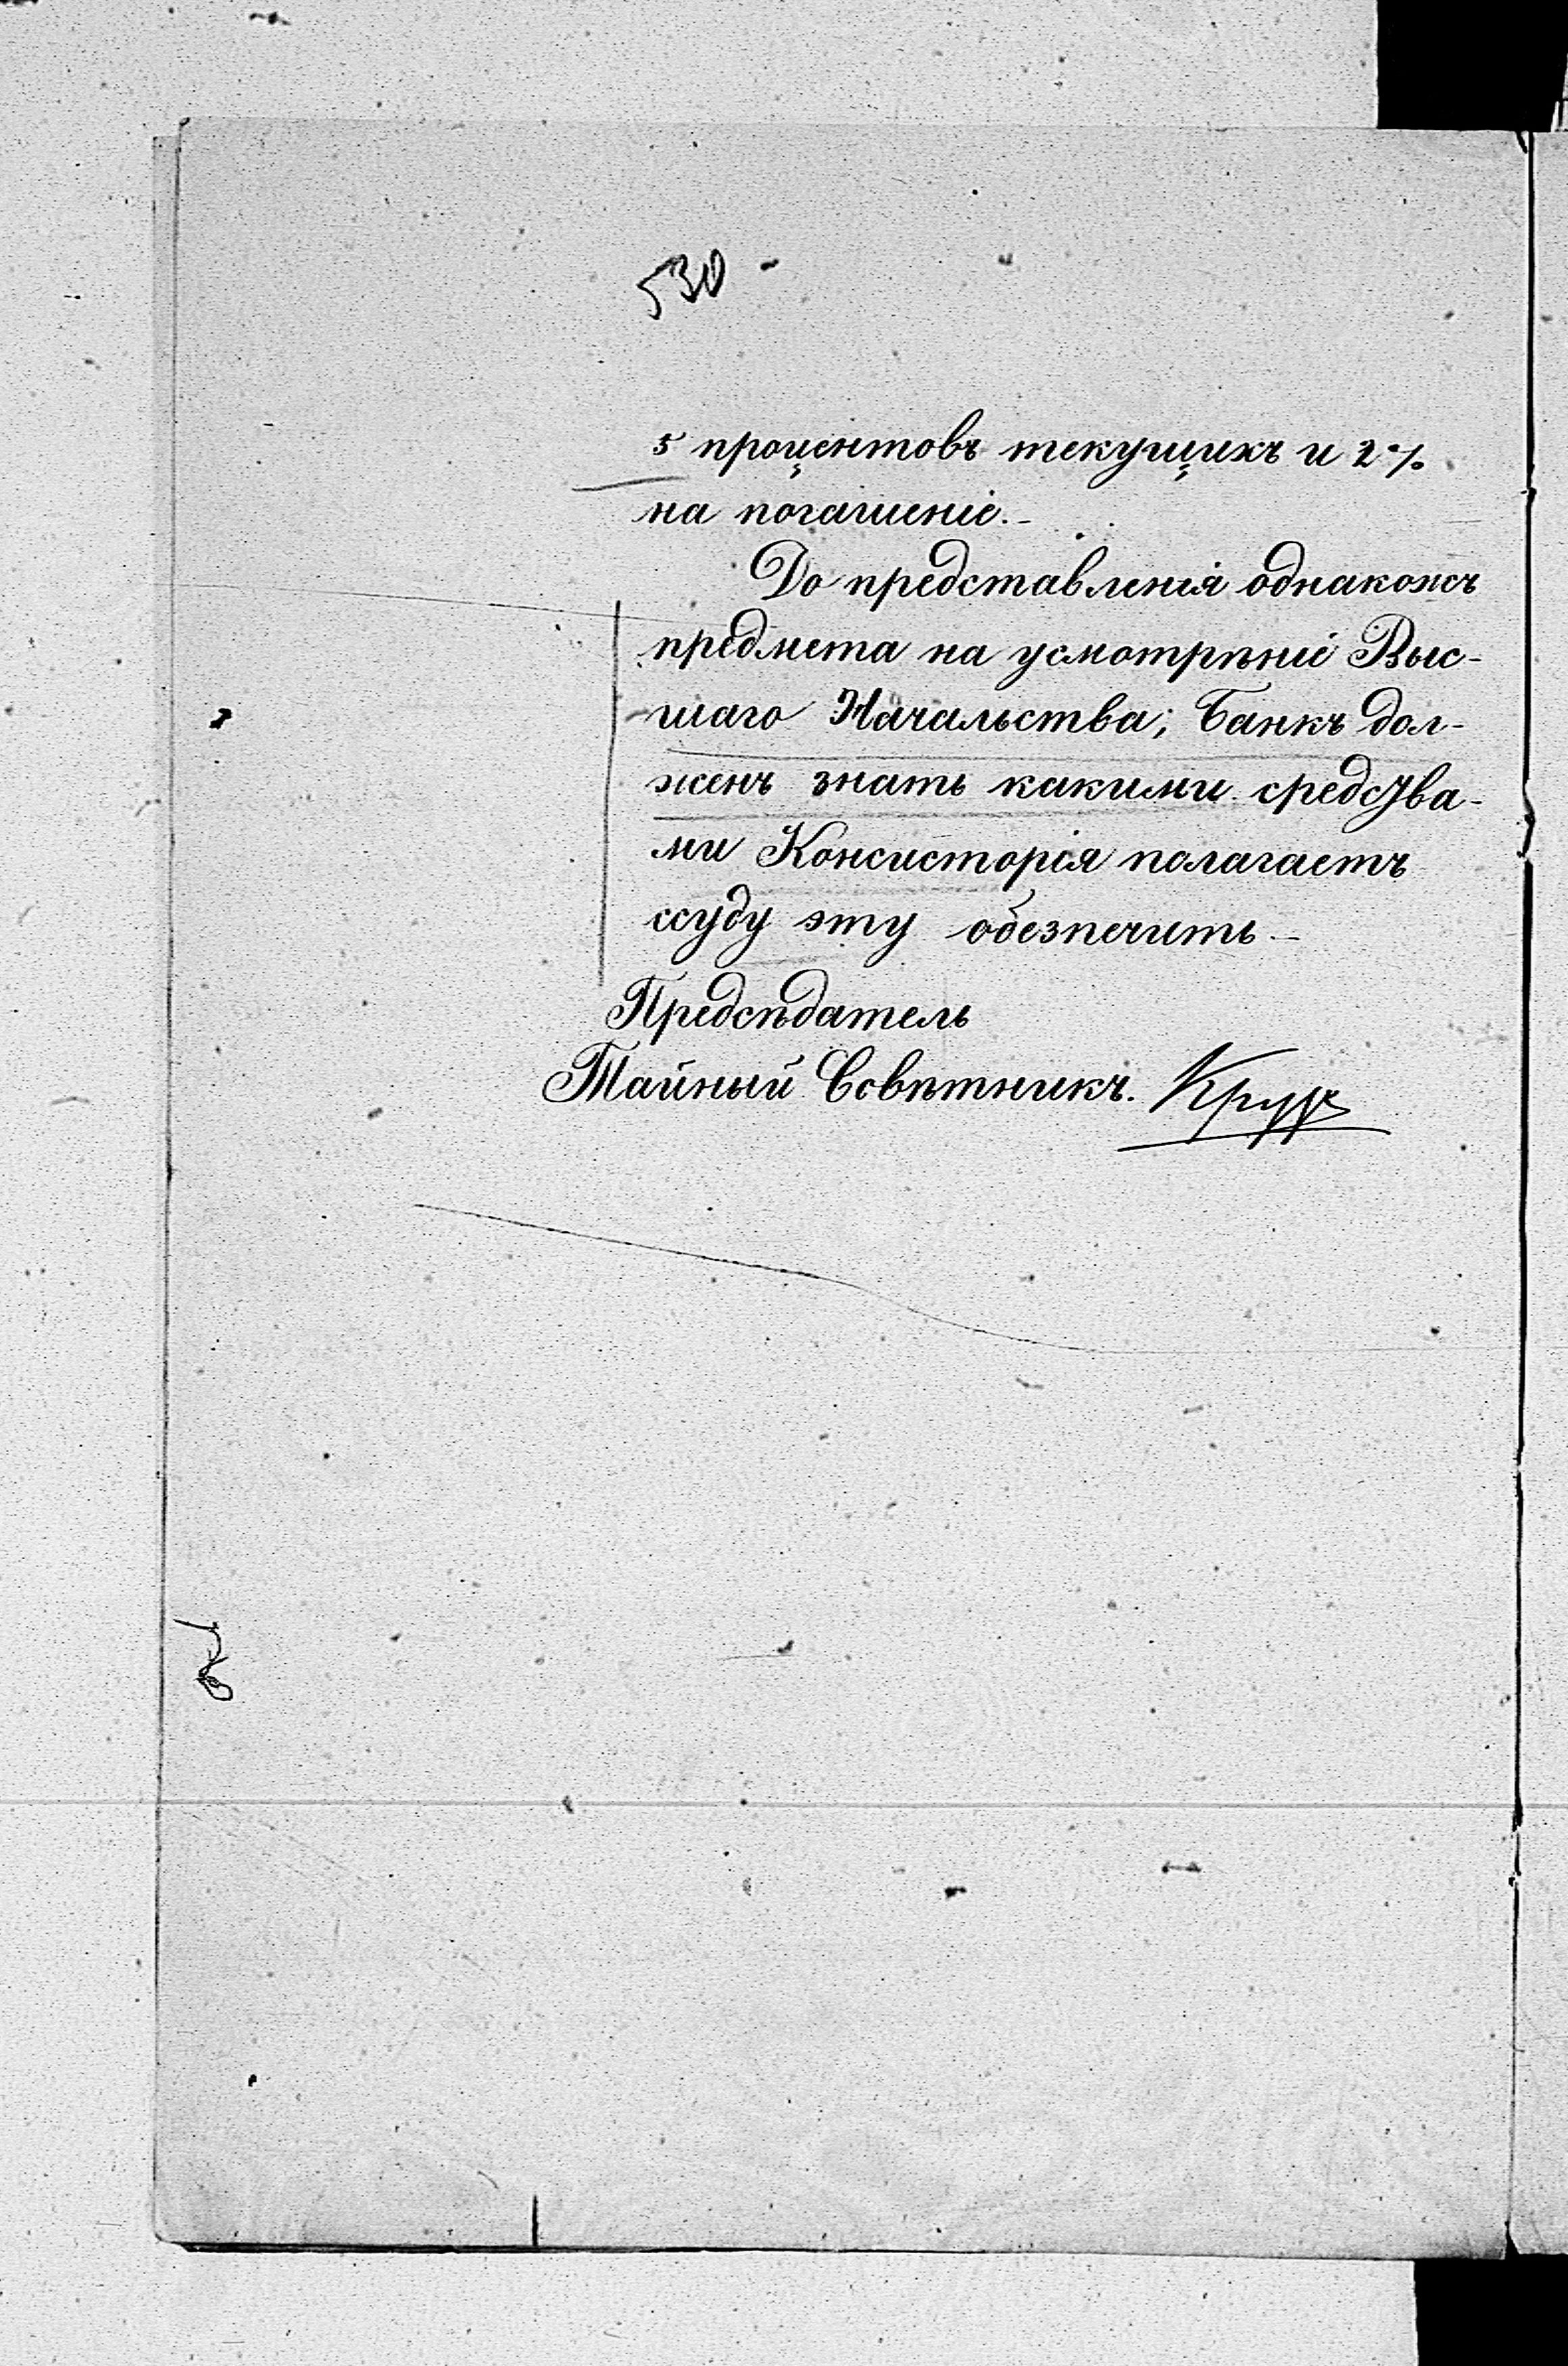 530
5 процентовъ текущихъ и 2%
на погашеніе.-
До представленія однакожъ
предмета на усмотрѣніе Выс-
шаго Начальства; Банкъ дол-
женъ знать какими средства-
ми Консисторія полагаетъ
ссуду эту обезпечить-
Предсѣдатель
Тайный Совѣтникъ.